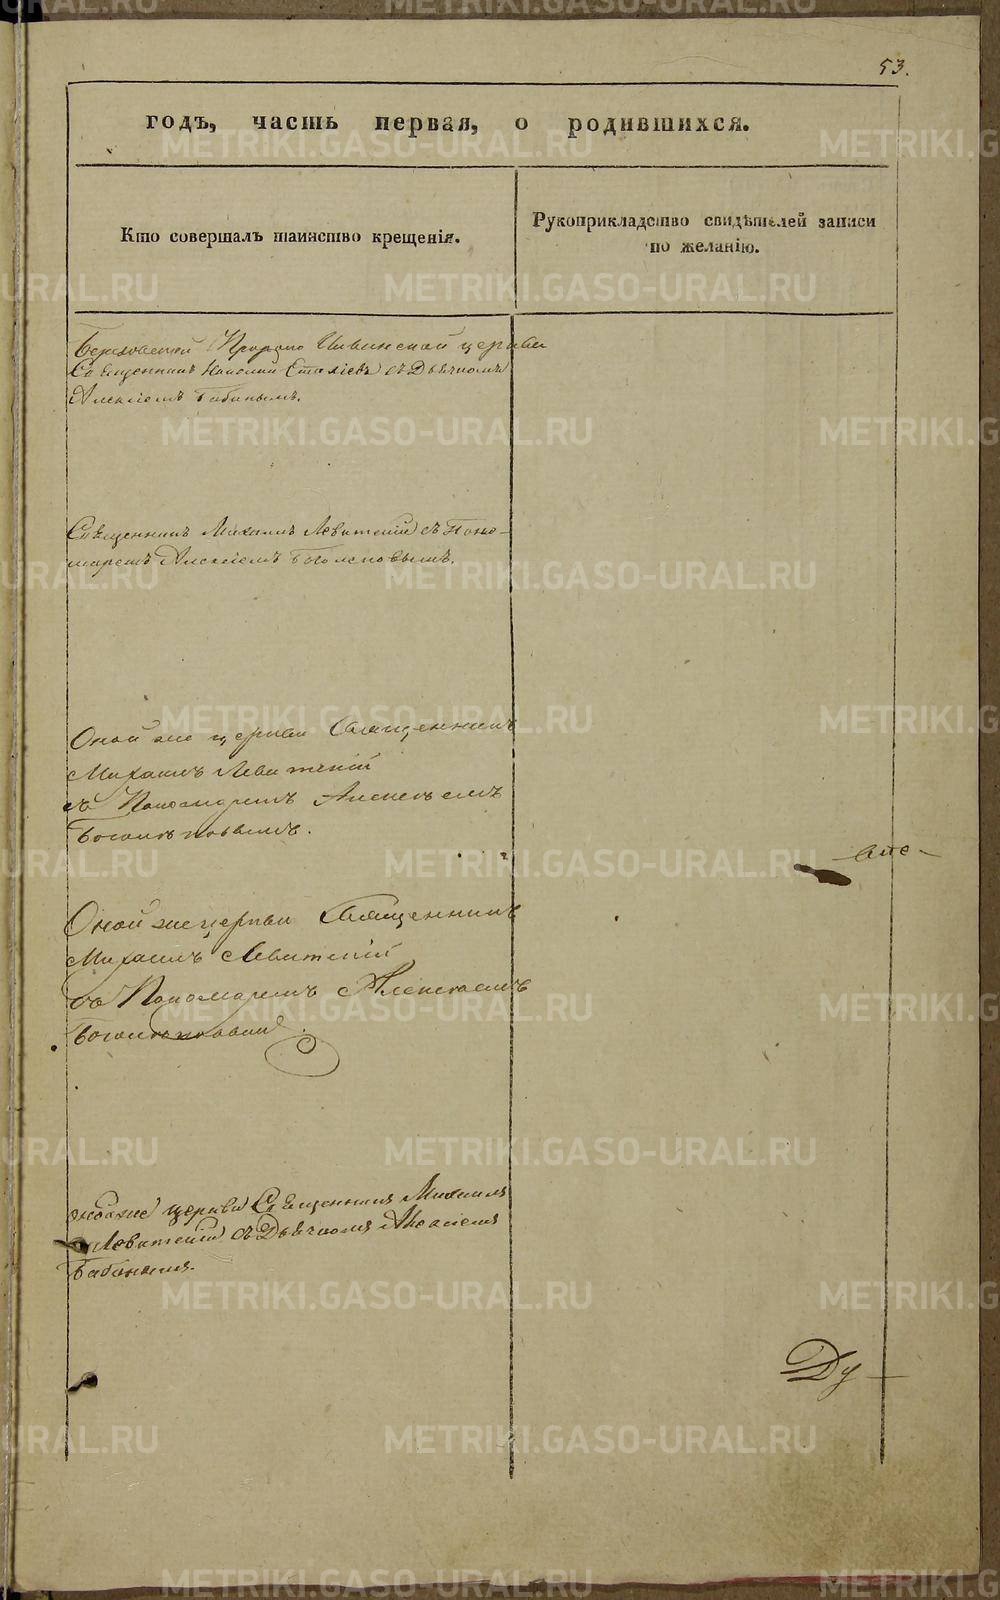 53.
годъ, часть первая, о родившихся.
Кто совершалъ таинство крещенія.
Рукоприкладство свидѣтелей записи
по желанію.
Пророко Ильинской церкви
Священникъ съ Дьячкомъ
Алексіемъ Бабинымъ.
Священникъ Михаилъ Левитскій съ Поно-
маремъ Алексіемъ Боголеповымъ.
Оной же церкви Священникъ
Михаилъ Левитскій
съ Пономаремъ Алексѣемъ
Боголѣповымъ.
Оной же церкви Священникъ
Михаилъ Левитскій
съ Пономаремъ Алексѣемъ
Боголѣповымъ
церкви Священникъ Михаилъ
Левитскій съ Дьячкомъ Алексіемъ
Бабинымъ.
Ду
METRIKI.GASO-URAL.RU